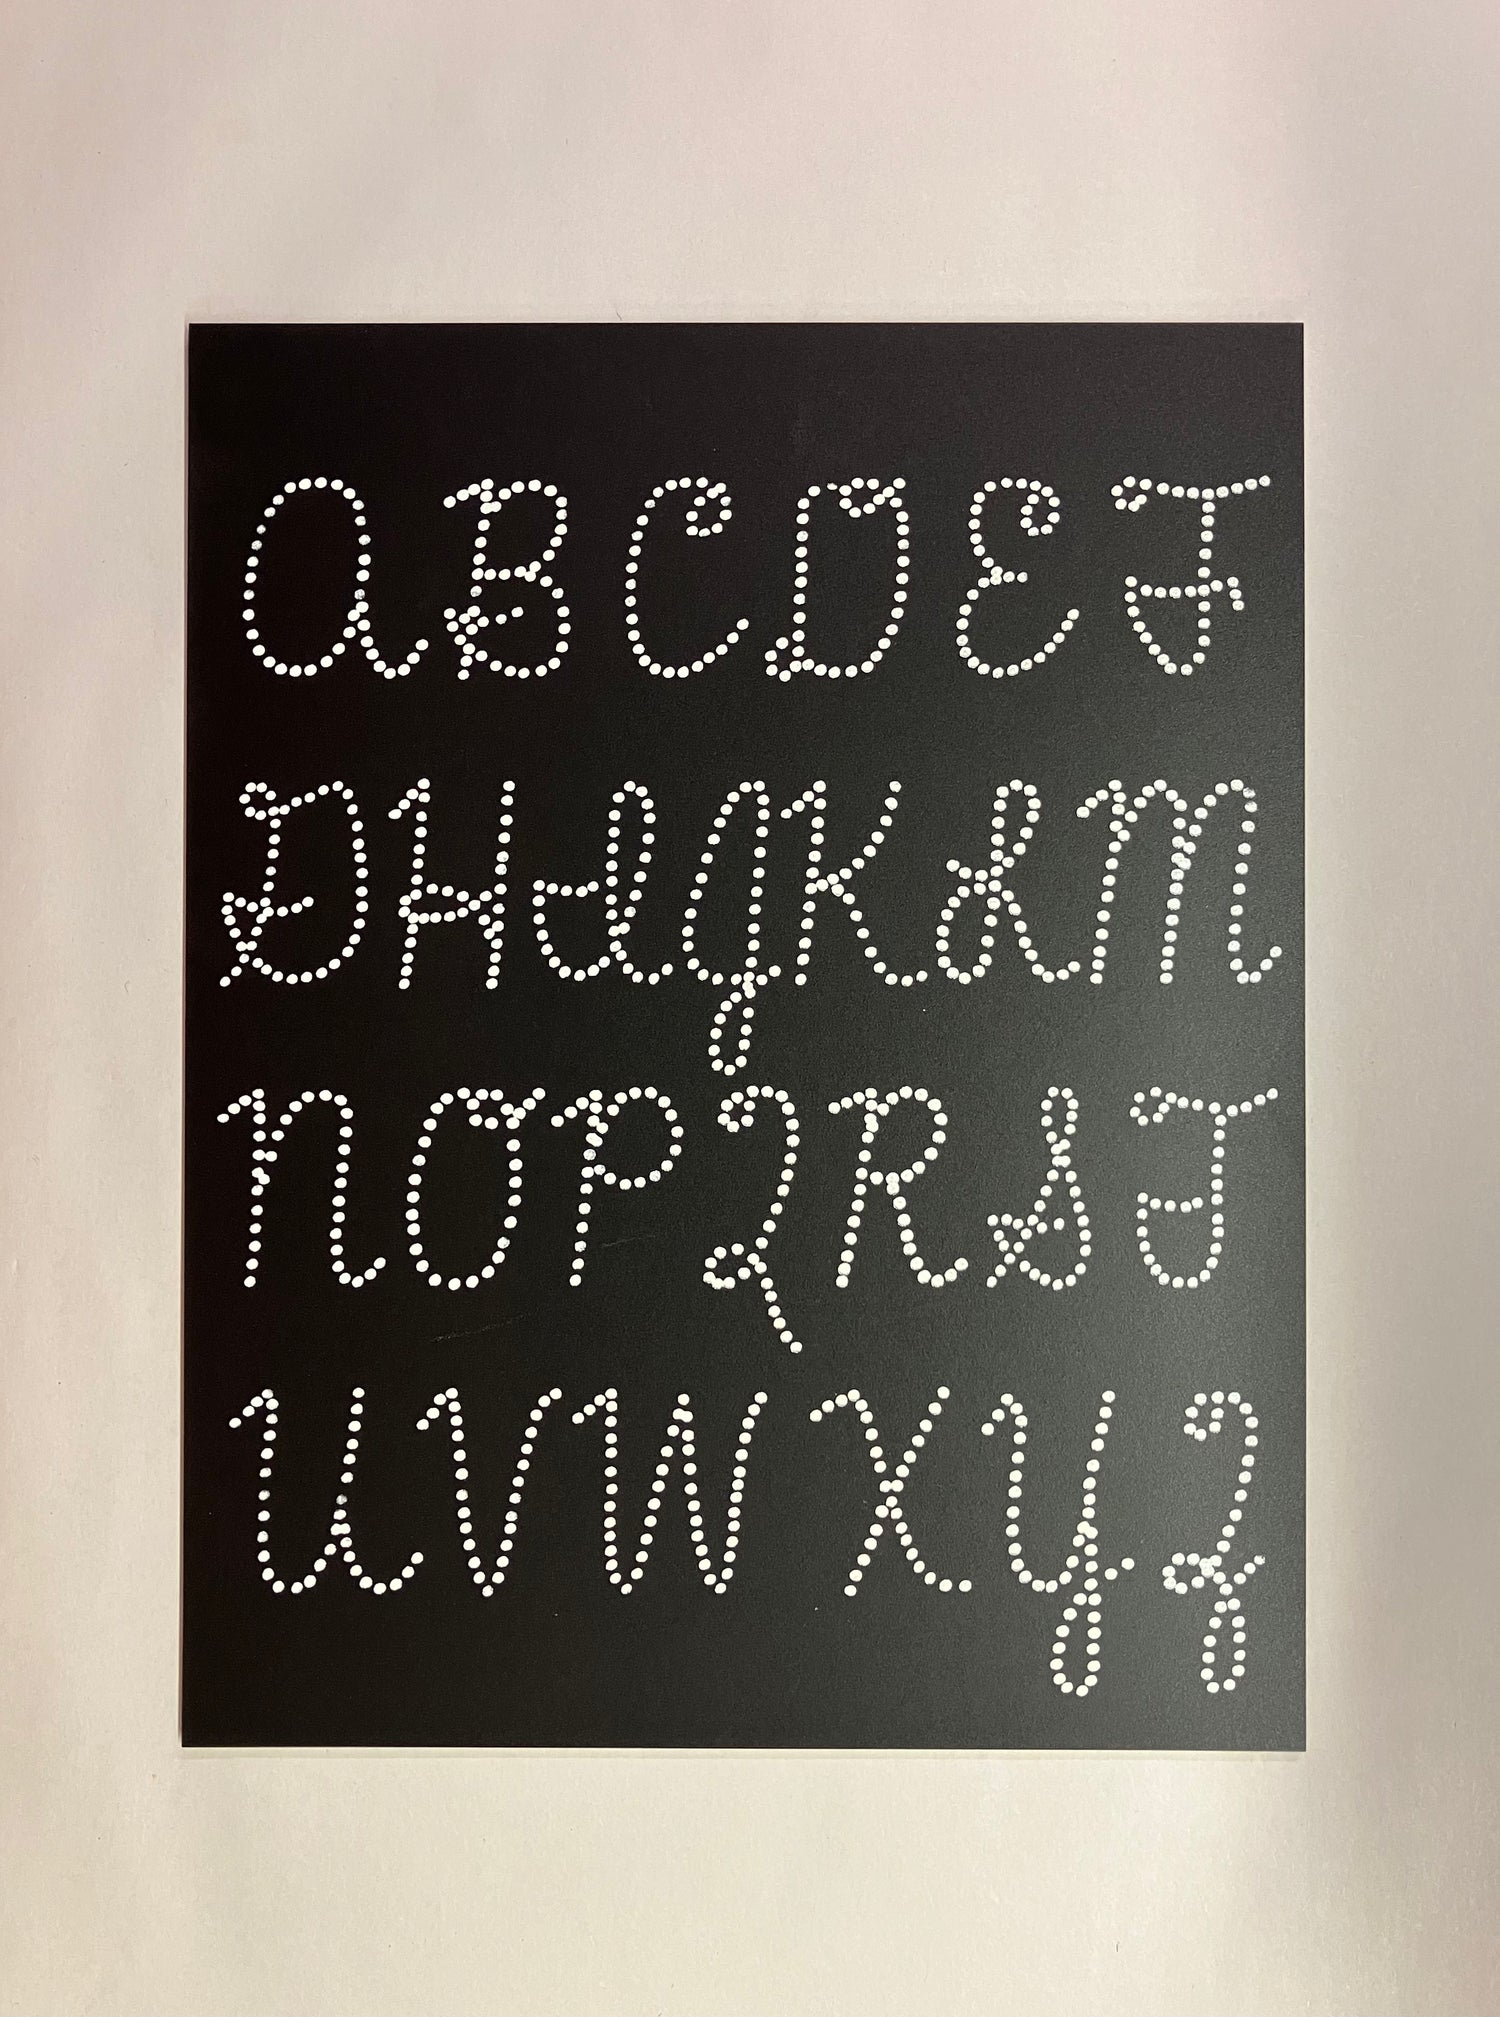 A B C D E F
D H I J K L M
N O P Q R S T
U V W X Y Z